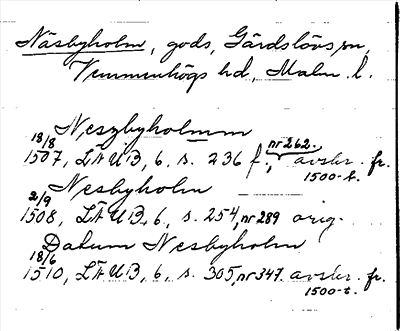 Näsbyholm, gods, Gärdslövs sn,
Vemmenhögs hd, Malm. l.
Neszbyholmm
18/8 1507, LÄUB, 6, s. 236 f., nr 262. avskr. fr. 1500-t.
Nesbyholm
2/9 1508, LÄUB, 6, s. 254, nr 289 orig.
Datum Nesbyholm
18/6 1510, LÄUB, 6, s. 305, nr 347. avskr. fr. 1500-t.